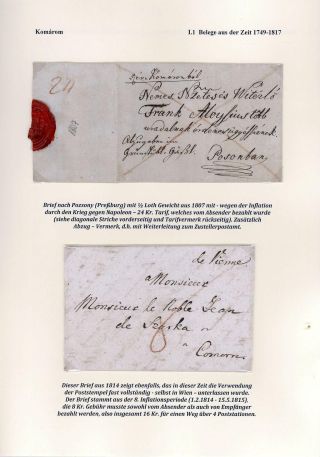 Komárom
I.1 Belege aus der Zeit 1749-1817
24
1807
Nemes
Frank Aloysius
Posonban
Brief nach Pozsony (Preßburg) mit ½ Loth Gewicht aus 1807 mit - wegen der Inflation
durch den Krieg gegen Napoleon – 24 Kr. Tarif, welches vom Absender bezahlt wurde
(siehe diagonale Striche vorderseitig und Tarifvermerk rückseitig). Zusätzlich
Abzug – Vermerk, d.h. mit Weiterleitung zum Zustellerpostamt.
de Vienne
a Monsieur
Monsieur le Noble Jean
de
a
Comorn
Dieser Brief aus 1814 zeigt ebenfalls, das in dieser Zeit die Verwendung
der Poststempel fast vollständig - selbst in Wien – unterlassen wurde.
Der Brief stammt aus der 8. Inflationsperiode (1.2.1814 - 15.5.1815),
die 8 Kr. Gebühr musste sowohl vom Absender als auch von Empfänger
bezahlt werden, also insgesamt 16 Kr. für einen Weg über 4 Poststationen.